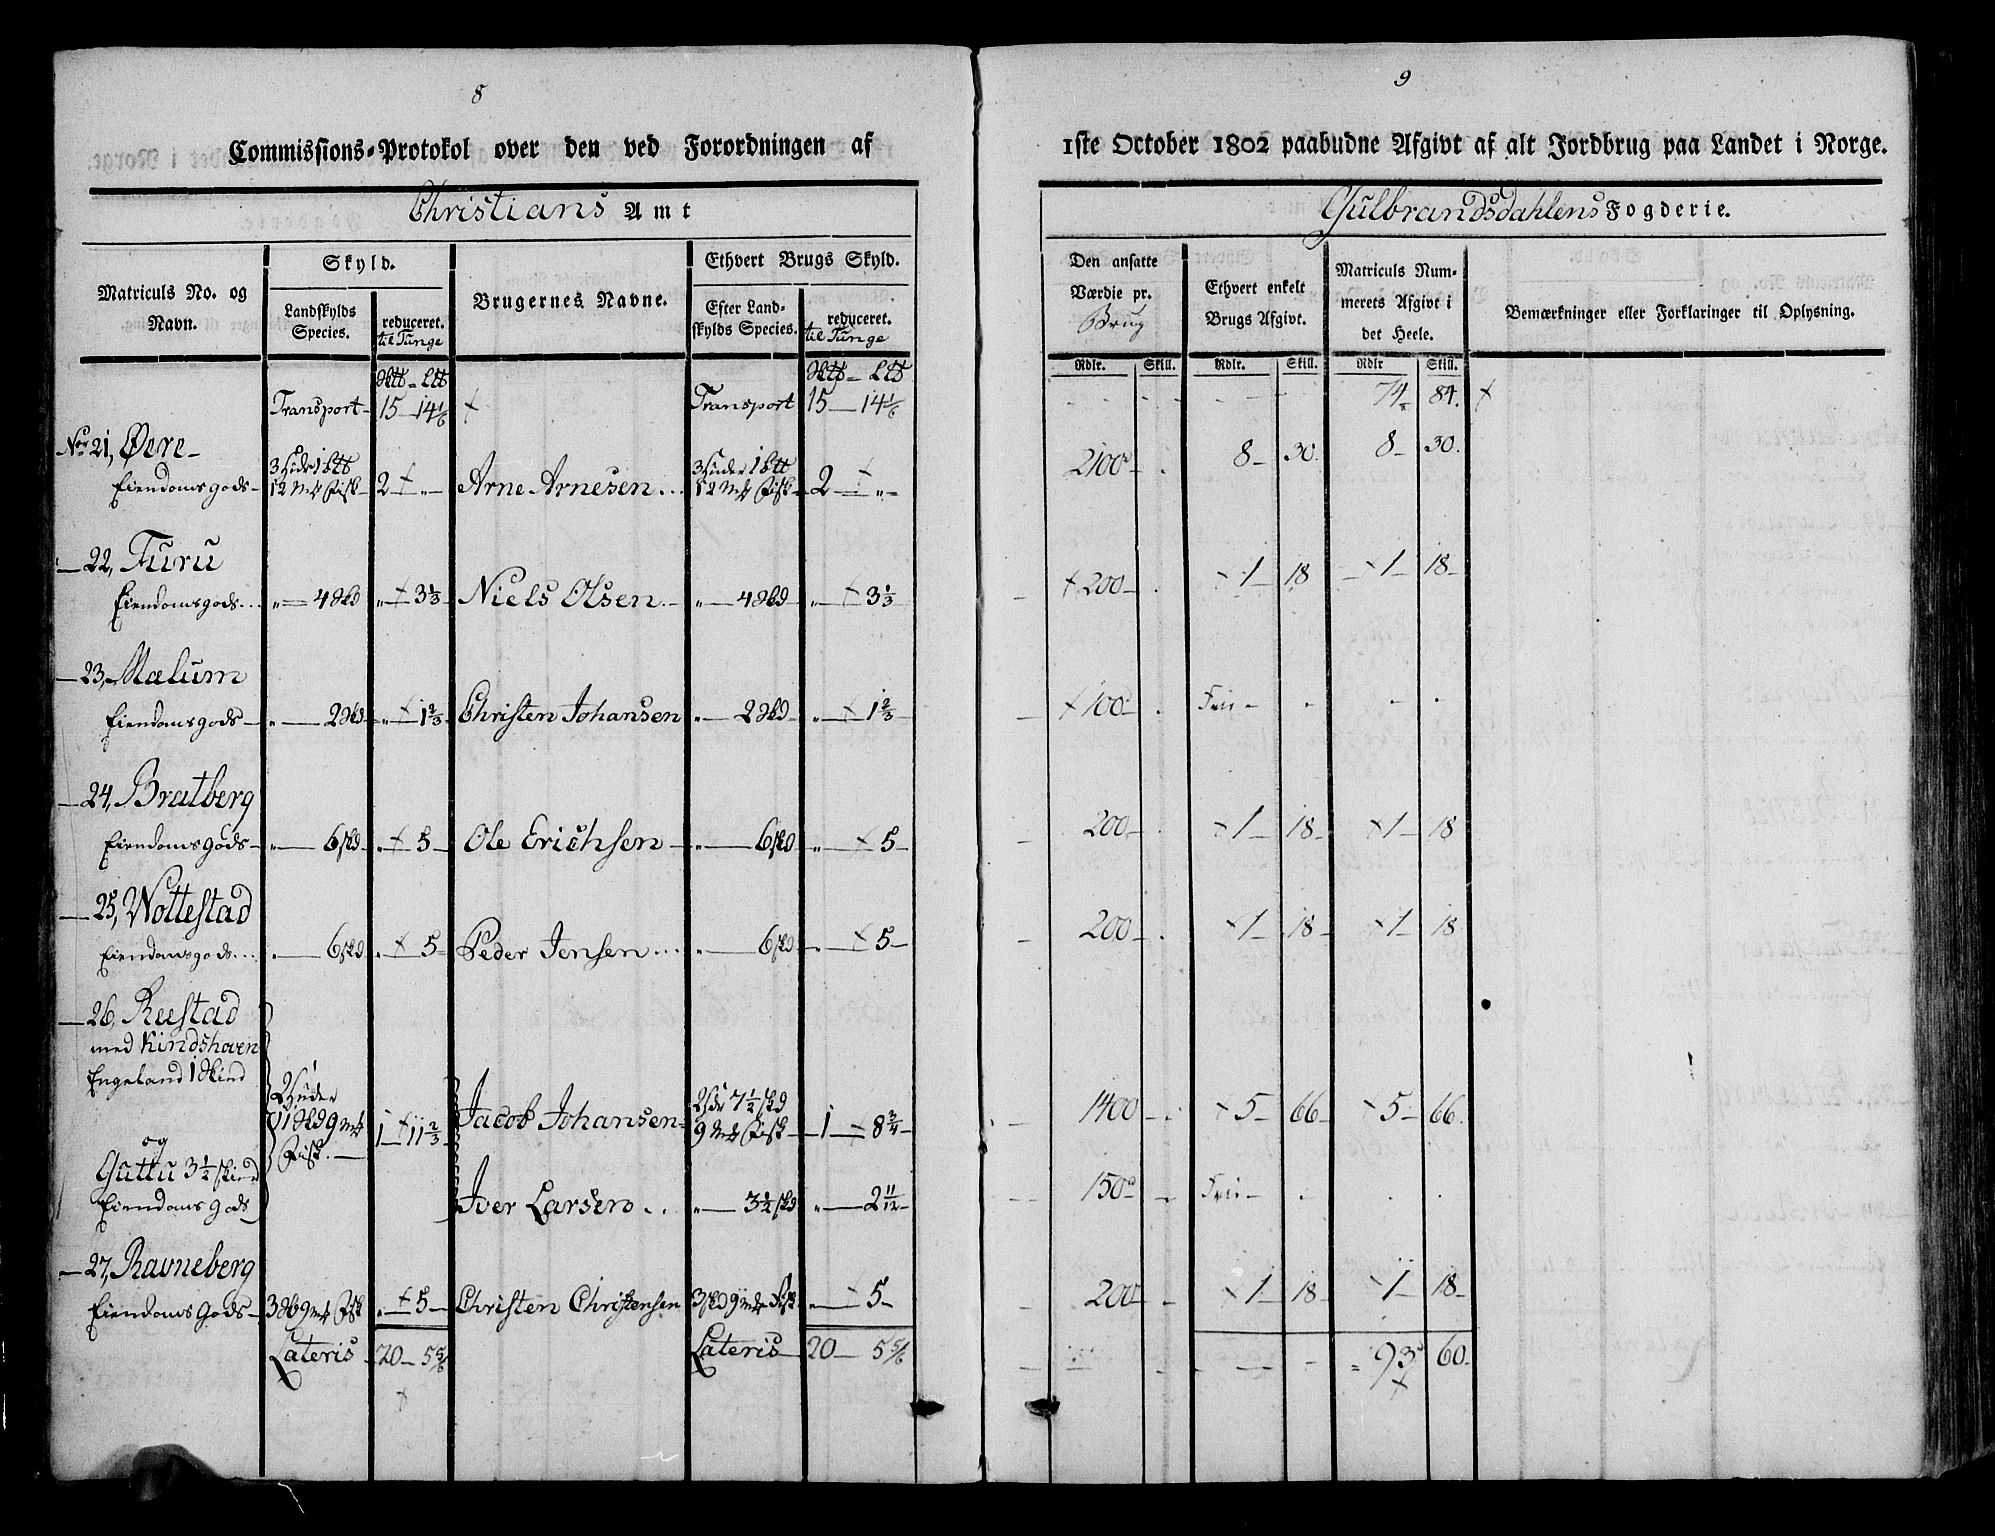 8
Commissions-Protokol over den ved Forordningen af
Christians Amt
Matriculs No. og Navn.
Skyld.
Landskylds Species.
reduceret.
til Tunge
Brugernes Navne.
Ethvert Brugs Skyld.
Efter Landskylds Species.
reduceret.
til Tunge
Transport 15 14 1/6 Transport 15 14 1/6
No 21, Øere
Eiendomsgods 3 Huder 1 btt 12 Mk Fisk 2 " Arne Arnesen 3 Huder 1 btt 12 Mk Fisk 2 "
22, Furu
Eiendomsgods " 4 Skd " 3 1/3 Niels Olsen " 4 Skd " 3 1/3
23, Mælum
Eiendomsgods " 2 Skd " 1 2/3 Christen Johansen " 2 Skd " 1 2/3
24, Bratberg
Eiendomsgods " 6 skd " 5 Ole Erichsen " 6 skd " 5
25, Nottestad
Eiendomsgods " 6 skd " 5 Peder Jensen " 6 skd " 5
26, Reestad
med Kindshoven
Engeland 1 Skind
2 Huder 11 Skd 9 mk Fisk 1 11 2/3 Jacob Johansen 2 Hdr 7 1/2 skd 9 Mk Fisk 1 8 3/4
og
Guttu 3 1/2 skind
Eiendoms Gods Iver Larsen " 3 1/2 skd " 2 11/12
27, Ravneberg
Eiendoms Gods 3 Sk 9 mk Fisk " 5 Christen Christensen 3 skd 9 mk Fisk " 5
Lateris 20 5 5/6 Lateris 20 5 5/6
9
1ste October 1802 paabudne Afgivt af alt Jordbrug paa Landet i Norge.
Gulbrandsdahlens Fogderie.
Den ansatte Værdie pr. Brug
Ethvert enkelt Brugs Afgivt.
Matriculs Nummerets Afgivt i det Heele.
Bemærkninger eller Forklaringer til Oplysning.
Rdlr. Skill. Rdlr. Skill. Rdlr Skill.
74 84
2100 8 30 8 30
200 1 18 1 18
100 Frii
200 1 18 1 18
200 1 18 1 18
1400 5 66 5 66
150 Frii
200 1 18 1 18
93 60